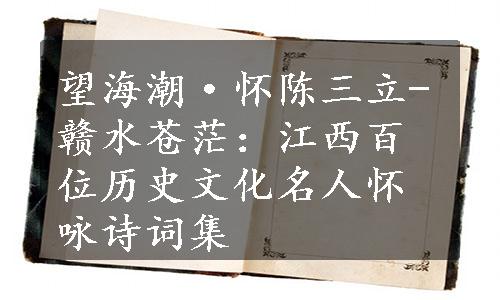 望海潮·怀陈三立-
赣水苍茫：江西百
位历史文化名人怀
咏诗词集